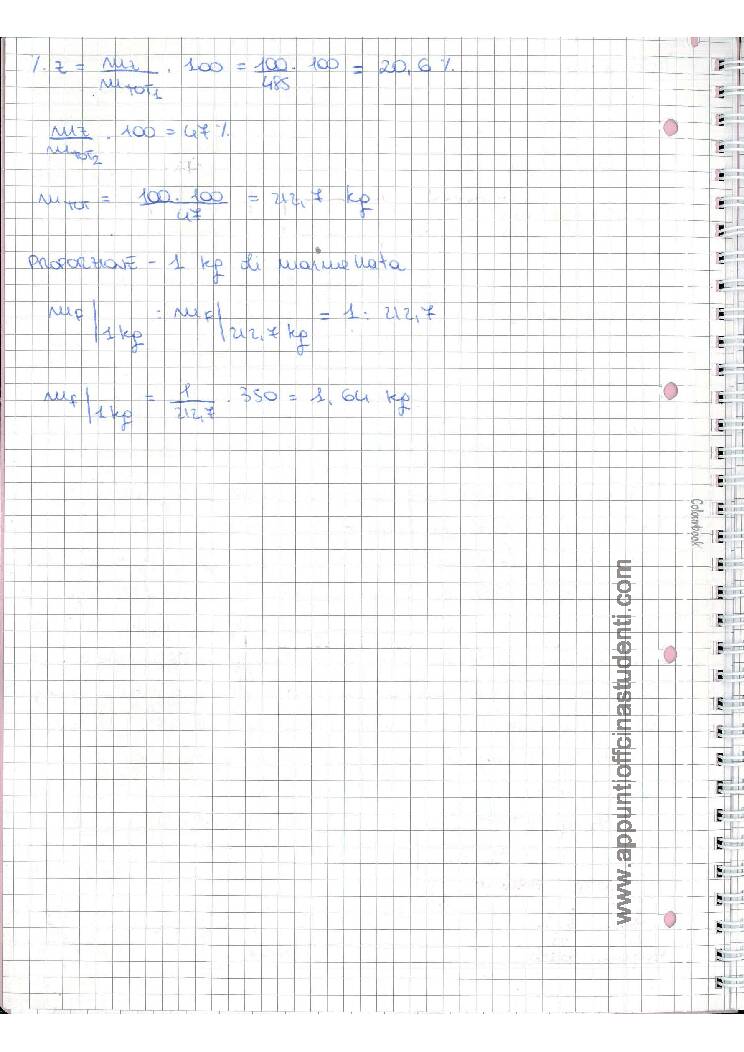 % z = mz / mTOT1 · 100 = 100 / 485 · 100 = 20,6 %
mz / mTOT2 · 100 = 47 %
mTOT = 100 · 100 / 47 = 212,7 kg
PROPORZIONE - 1 kg di marmellata
mF | 1 kg : mF | 212,7 kg = 1 : 212,7
mF | 1 kg = 1 / 212,7 · 350 = 1,64 kg
Colourbook
www.appuntioffcinastudenti.com